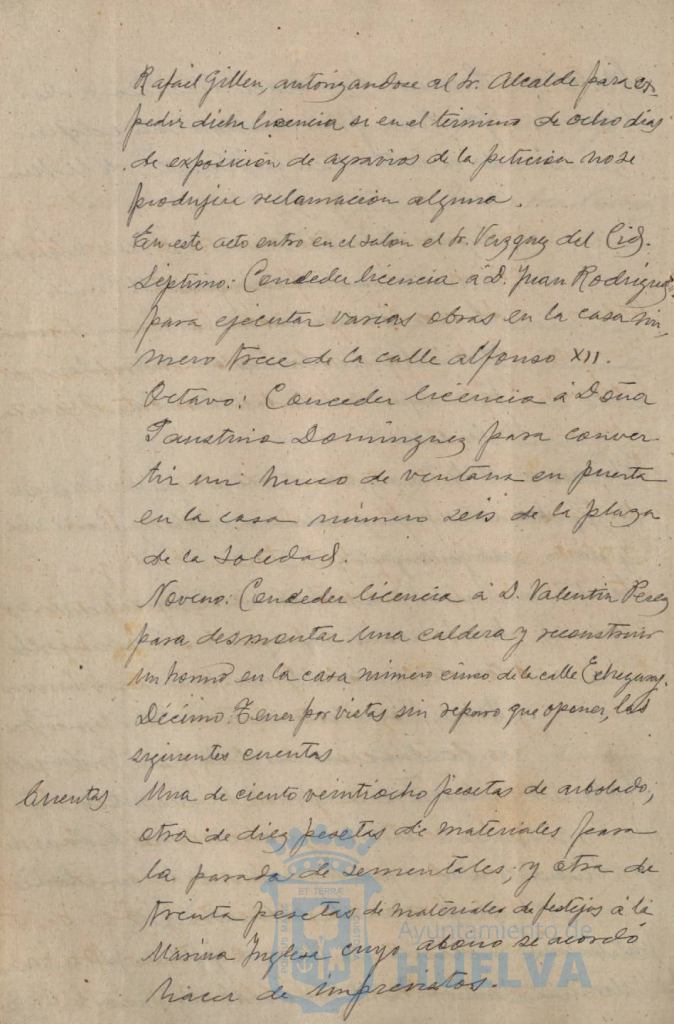 Rafael Gillen, autorizandose al Sr. Alcalde para ex-
pedir dicha licencia si en el término de ocho dias
de exposición de agravios de la petición no se
produjere reclamación alguna.
En este acto entro en el salon el Sr. Vazquez del Cid.
Séptimo: Conceder licencia á D. Juan Rodriguez
para ejecutar varias obras en la casa nú-
mero trece de la calle alfonso XII.
Octavo: Conceder licencia á Doña
Faustina Dominguez para conver-
tir un hueco de ventana en puerta
en la casa número seis de la plaza
de la Soledad.
Noveno: Conceder licencia á D. Valentin Perez
para desmontar una caldera y reconstruir
un horno en la casa número cinco de la calle Echegaray.
Décimo: Tener por vistas sin reparo que oponer, las
siguientes cuentas
Cuentas
Una de ciento veintiocho pesetas de arbolado;
otra de diez pesetas de materiales para
la parada de sementales; y otra de
treinta pesetas de materiales de festejos á la
Marina Inglesa cuyo abono se acordó
hacer de imprevistos.
ET TERRÆ
Ayuntamiento de
HUELVA